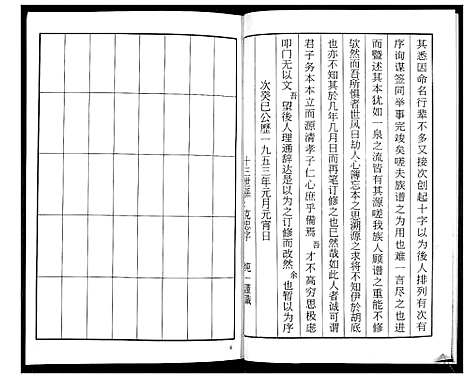 其悉因命名行輩不多又接次创起十字以為後人排列有次有
序询谋签同举事完竣矣嗟夫族谱之為用也难一言尽之也进
而暨述其本犹如一泉之流皆有其源嗟我族人顾谱之重能不修
欤然而吾所惧者世风日劫人心薄忘本之思溯源之求将不知伊於胡底
亦不知其於几年几月日而再笔订修之也已然哉如此人者诚可谓
君子务本本立而源清孝子仁心庶乎備焉吾才不高穷思极虑
叩门无以文吾望後人理通辞达是以為之订修而改然余也暂以為序
次癸巳公歷一九五三年元月元宵日
十三世